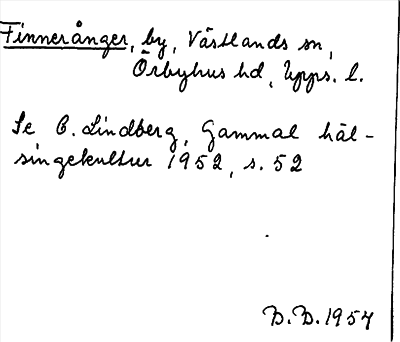 Finnerånger, by, Västlands sn,
Örbyhus hd, Upps. l.
Se C. Lindberg, Gammal häl-
singekultur 1952, s. 52
B.B. 1957